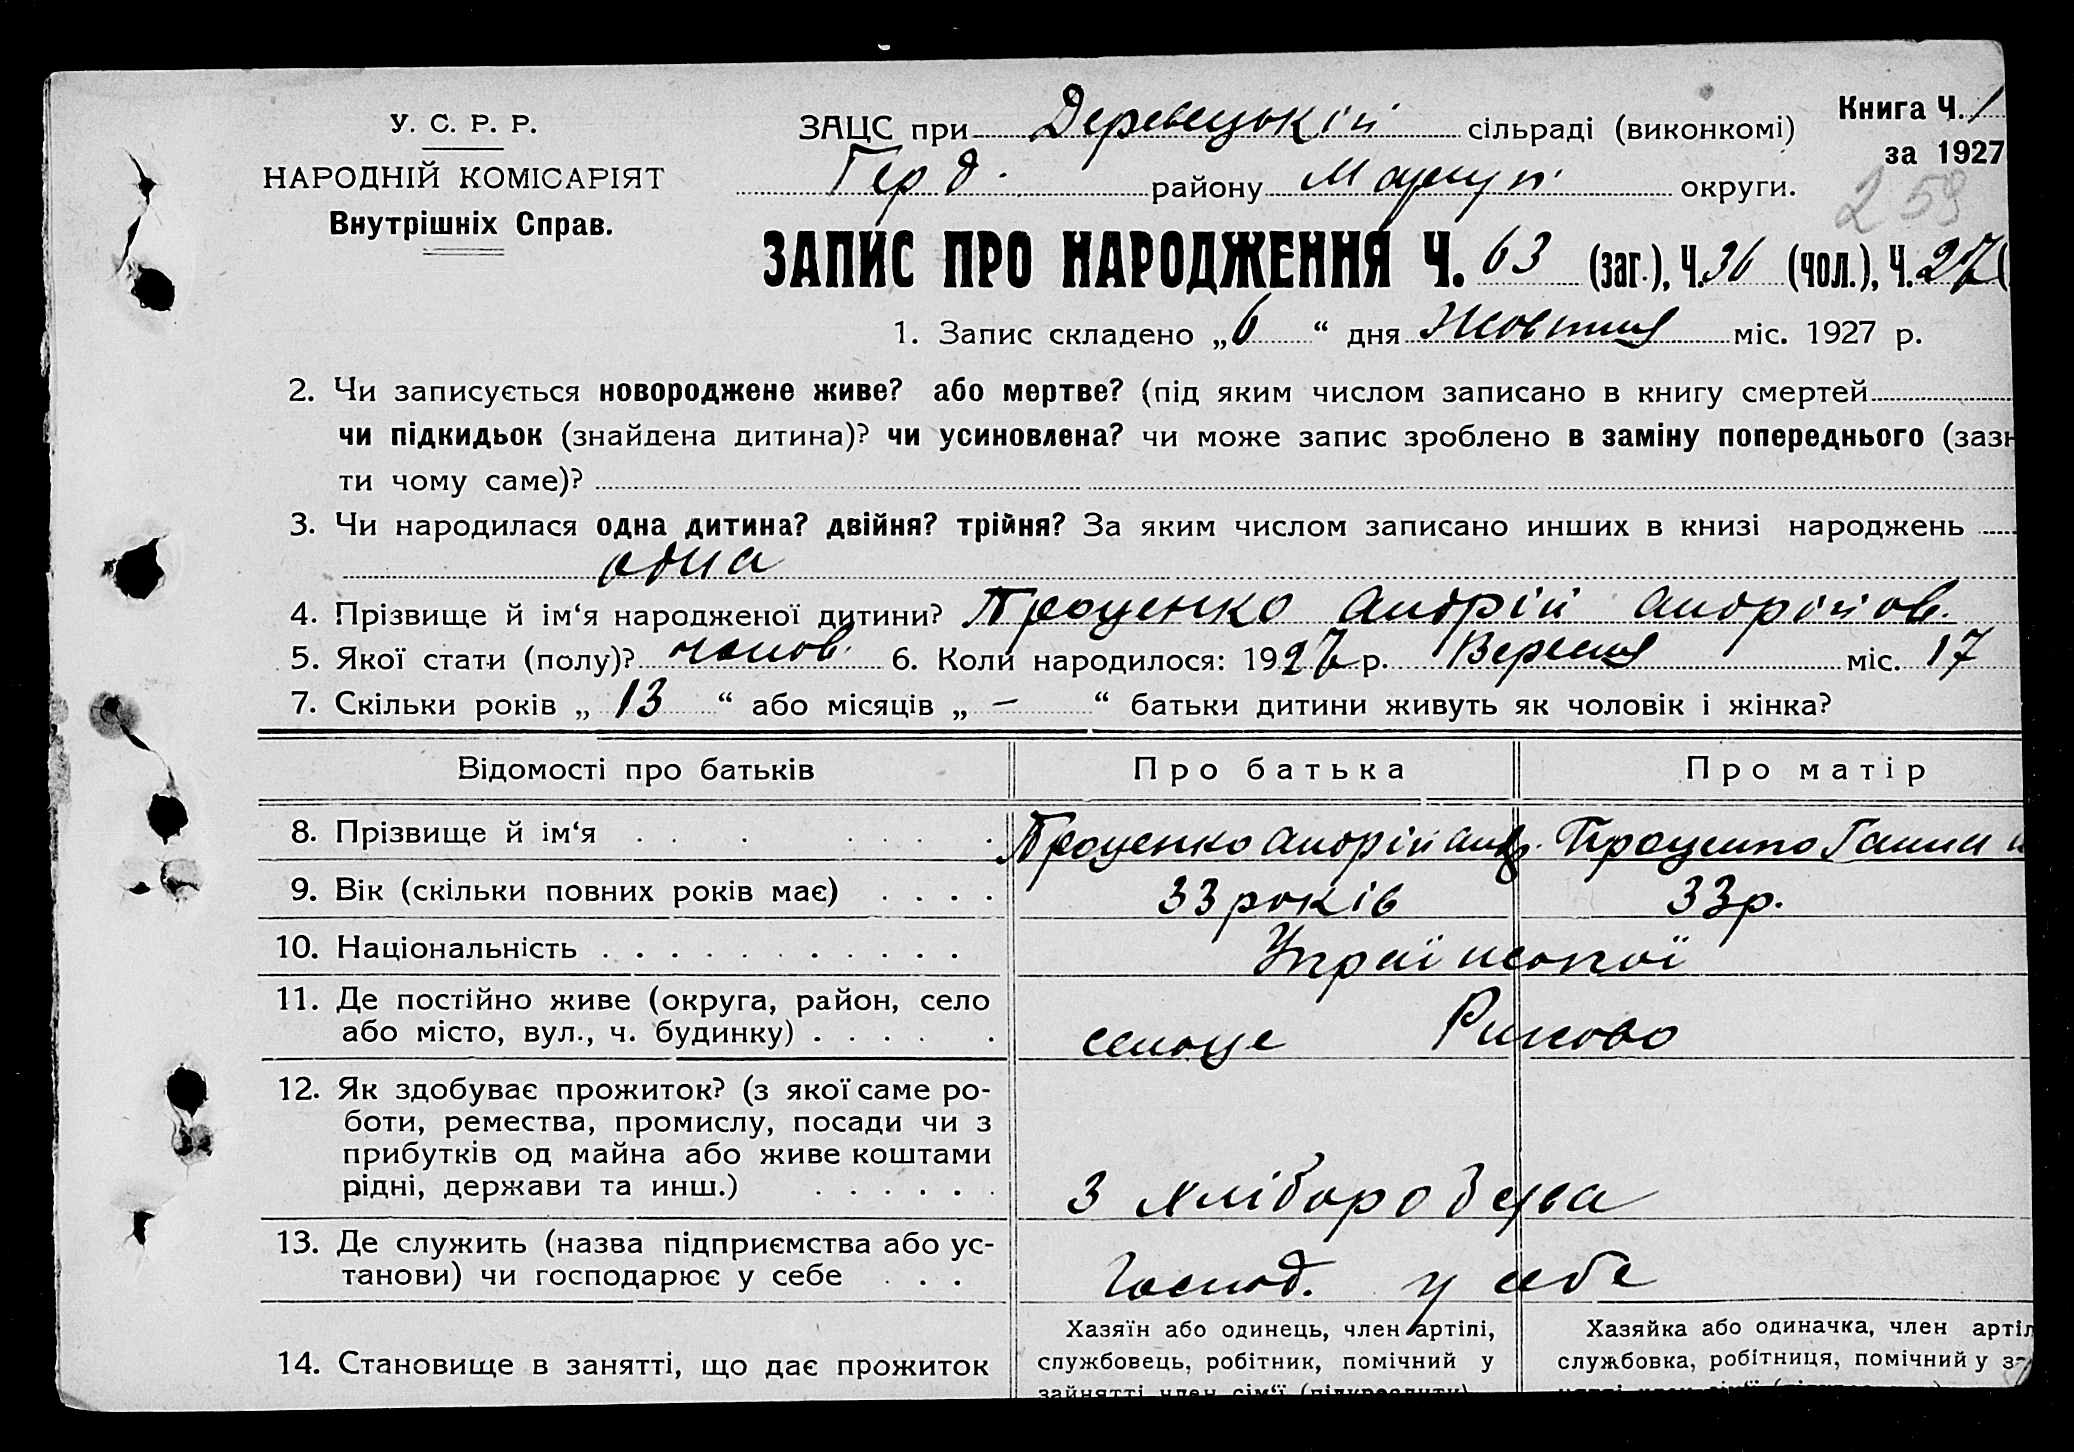 У. С. Р. Р.
НАРОДНІЙ КОМІСАРІЯТ
Внутрішніх Справ.
ЗАЦС при Деревецькій сільраді (виконкомі)
Книга Ч. 1
за 1927
району Маріуп. округи.
259
ЗАПИС ПРО НАРОДЖЕННЯ Ч. 63 (заг.), Ч. 36 (чол.), Ч. 27 (
1. Запис складено „ 6 “ дня Жовтня міс. 1927 р.
2. Чи записується новороджене живе? або мертве? (під яким числом записано в книгу смертей
чи підкидьок (знайдена дитина)? чи усиновлена? чи може запис зроблено в заміну попереднього (зазн
ти чому саме)?
3. Чи народилася одна дитина? двійня? трійня? За яким числом записано инших в книзі народжень
одна
4. Прізвище й ім‘я народженої дитини? Проценко Андрій Андрійов.
5. Якої стати (полу)? чолов. 6. Коли народилося: 1927 р. Вересня міс. 17
7. Скільки років „ 13 “ або місяців „ — “ батьки дитини живуть як чоловік і жінка?
Відомості про батьків Про батька Про матір
8. Прізвище й ім‘я . . . . . . . Проценко Андрій Анд. Проценко Ганна
9. Вік (скільки повних років має) . . . . 33 років 33 р.
10. Національність . . . . . . . . . . . Української
11. Де постійно живе (округа, район, село
або місто, вул., ч. будинку) . . . . . селище
12. Як здобуває прожиток? (з якої саме ро-
боти, ремества, промислу, посади чи з
прибутків од майна або живе коштами
рідні, держави та инш.) . . . . . . З хліборобства
13. Де служить (назва підприємства або ус-
танови) чи господарює у себе . . . Господ. у себе
Хазяїн або одинець, член артілі, Хазяйка або одиначка, член артіл
14. Становище в занятті, що дає прожиток службовець, робітник, помічний у службовка, робітниця, помічний у з
зайнятті член сім‘ї (підкреслити)